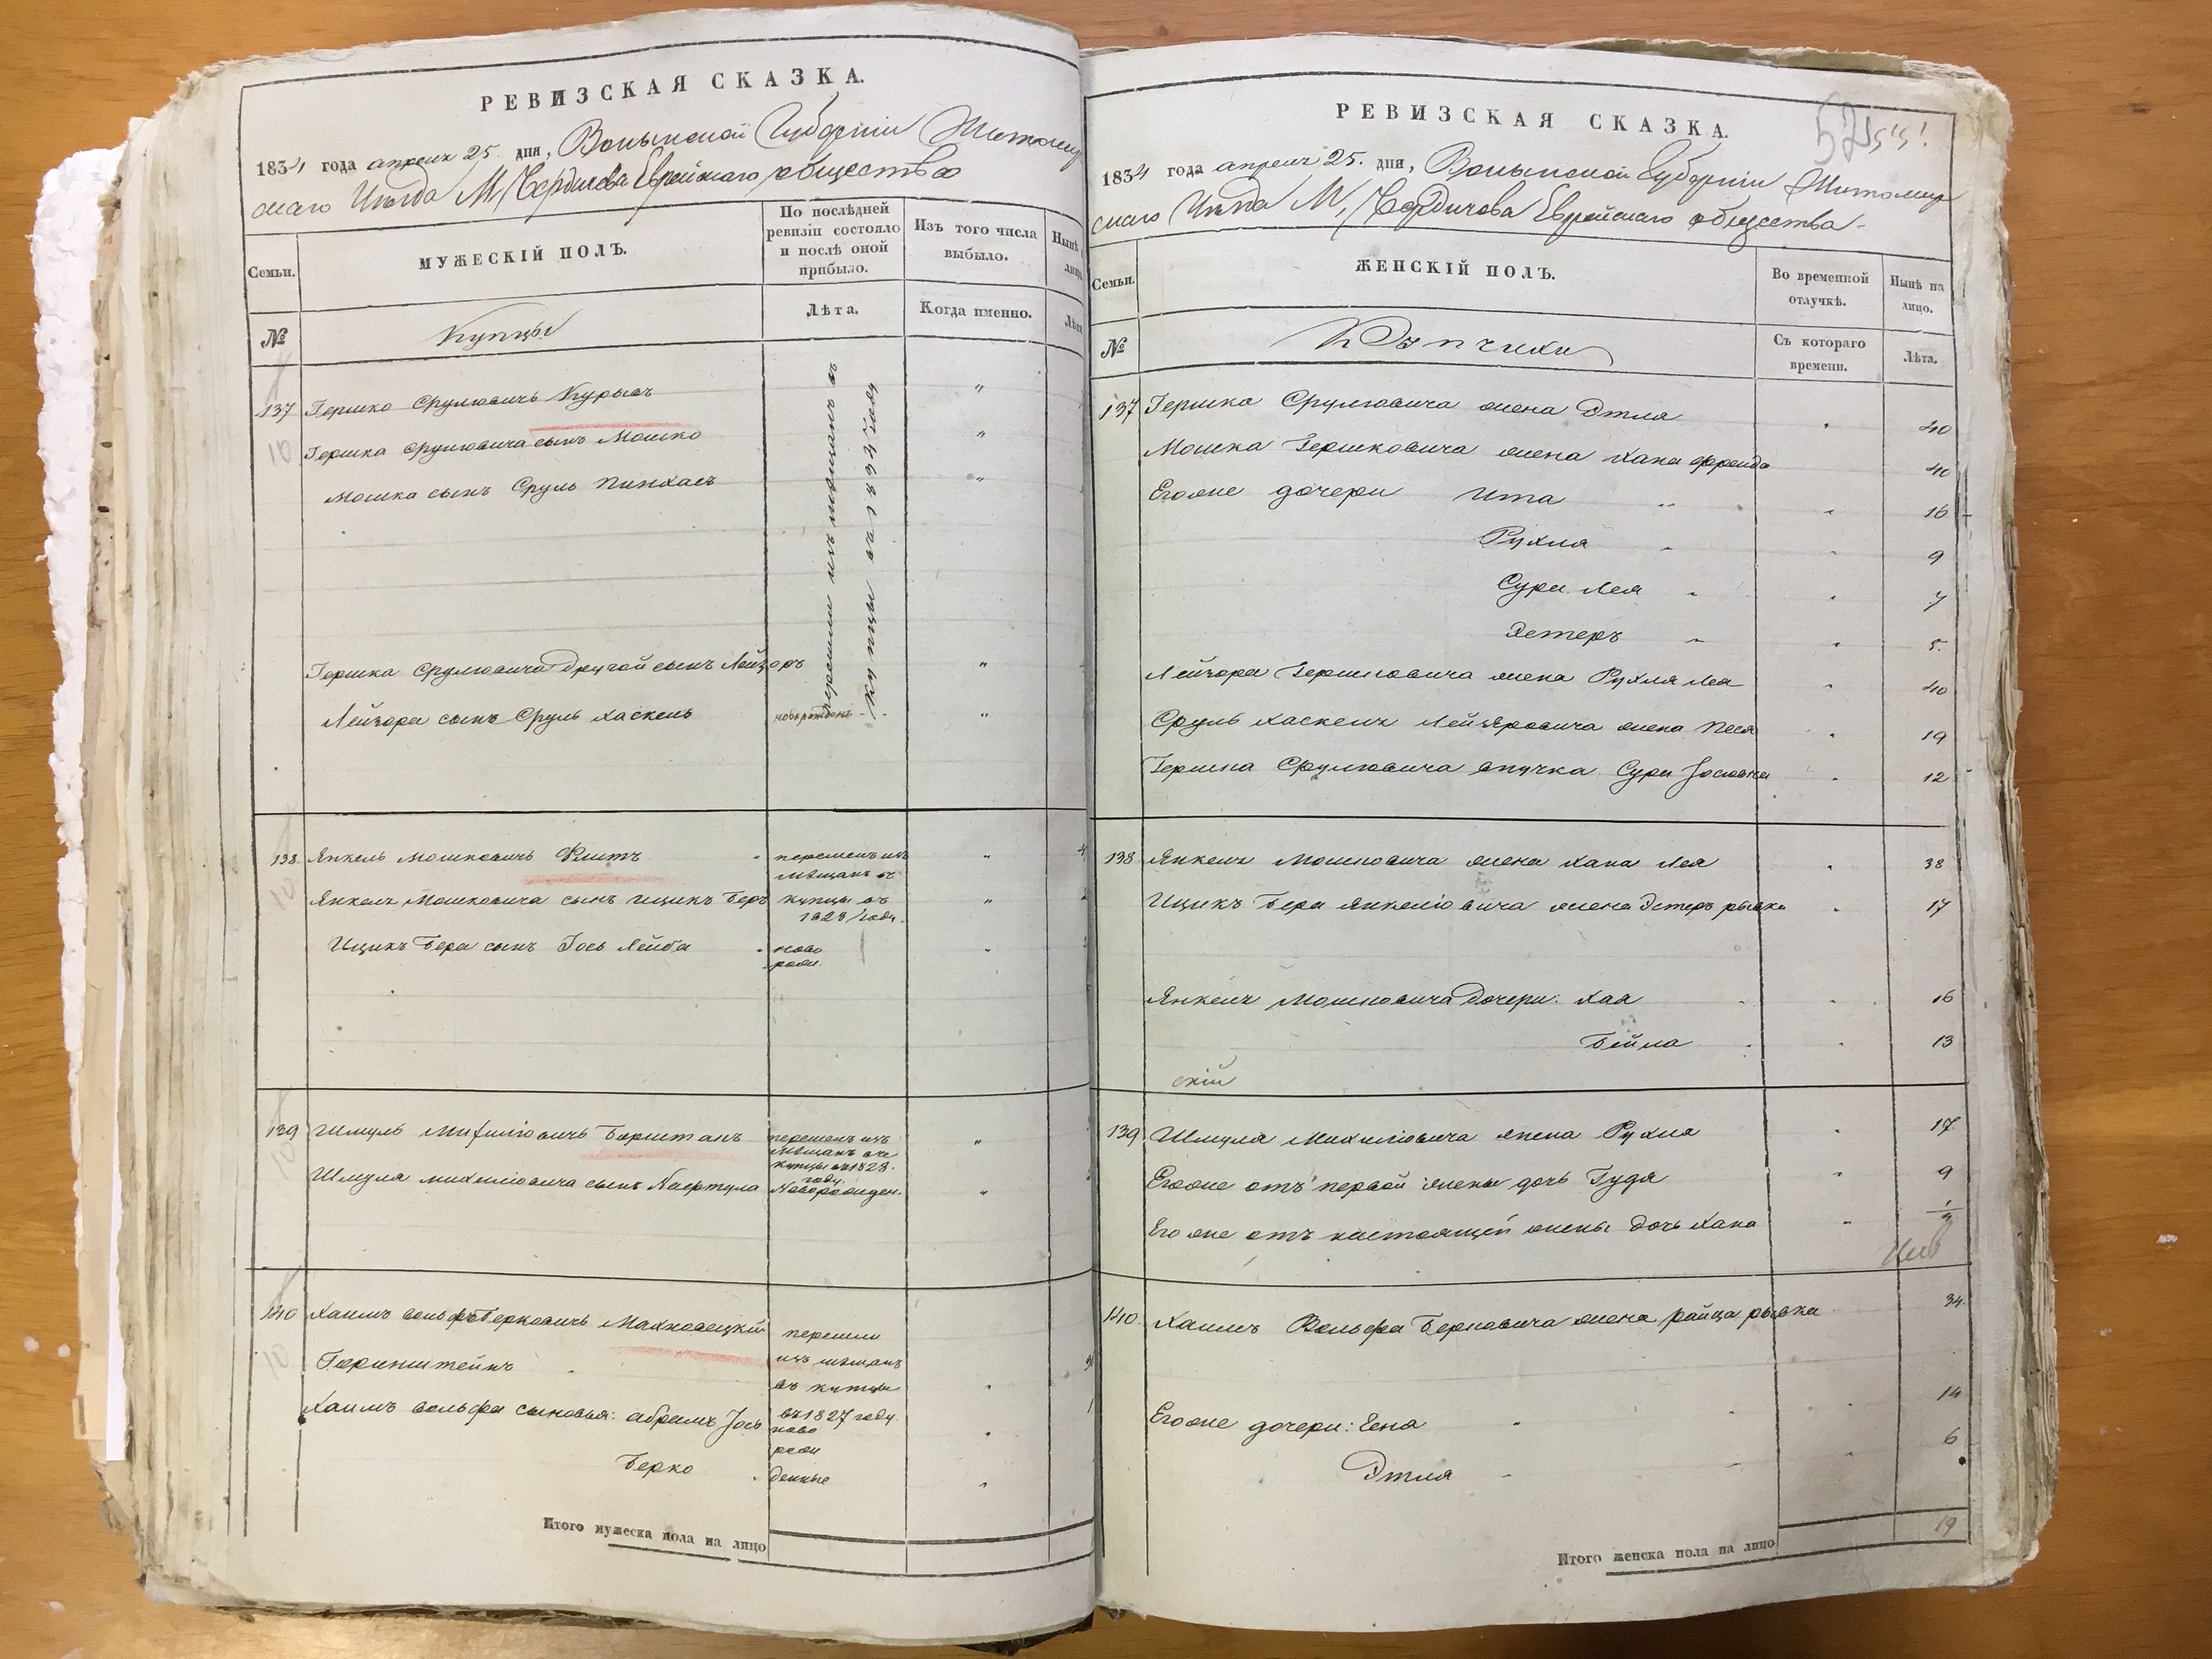 РЕВИЗСКАЯ СКАЗКА.
1834 года апреля 25. дня, Волынской Губерніи Житомир
скаго Уѣзда М, Бердичева Еврейскаго общества
Семьи.
МУЖЕСКІЙ ПОЛЪ.
По послѣдней ревизіи состояло и послѣ оной прибыло.
Изъ того числа выбыло.
Нынѣ
№
Купцы
Лѣта.
Когда именно.
Лѣта
перешли изъ мѣщанъ въ
купцы въ 1834 году
137 Гершко Срулювичъ
Гершка Срулювича сынъ Мошко
Мошка сынъ Сруль Пинхасъ
Гершка Срулювича другой сынъ Лейзоръ
Лейзора сынъ Сруль Хаскель новорожден
138 Янкель Мошковичъ перешелъ изъ
мѣщанъ въ
Янкеля Мошковича сынъ Ицикъ Беръ купцы въ
1828 году.
Ицикъ Бера сынъ Іось Лейба ново
рож.
139 Шмуль Михилювичъ перешелъ изъ
мѣщанъ въ
купцы въ 1828.
году.
Шмуля Михилювича сынъ новорожден.
140 Хаимъ Вольфъ Берковичъ Махновецкій перешли
Горинштейнъ изъ мѣщанъ
въ купцы
Хаимъ Вольфа сыновья: Абрамъ Іось въ 1827 году.
ново
рож
Берко денные
Итого мужеска пола на лицо
РЕВИЗСКАЯ СКАЗКА.
1834 года апреля 25. дня, Волынской Губерніи Житомир
скаго Уѣзда М, Бердичова Еврейскаго общества
Семьи.
ЖЕНСКІЙ ПОЛЪ.
Во временной отлучкѣ.
Нынѣ на лицо.
№
Купчихи
Съ котораго времени.
Лѣта.
137 Гершка Срулювича жена Этля 40
Мошка Гершковича жена Хана Фрейда 40
Егоже дочери Ита 16
Рухля 9
Сура Лея 7
Эстеръ 5
Лейзора Гершковича жена Рухля Лея 40
Сруль Хаскеля Лейзяровича жена Песя 19
Гершка Срулювича внучка Сура Іосіовна 12
138 Янкеля Мошковича жена Хана Лея 38
Ицикъ Бера Янкелювича жена Эстеръ рывка 17
Янкеля Мошковича дочери: Хая 16
Бейла 13
скій
139 Шмуля Михилювича жена Рухля 17
Егоже отъ первой жены дочь Гудя 9
Егоже отъ настоящей жены дочь Хана
140. Хаимъ Вольфа Берковича жена райца рывка 34
Егоже дочери: Гена 14
Этля 6
19
Итого женска пола на лицо